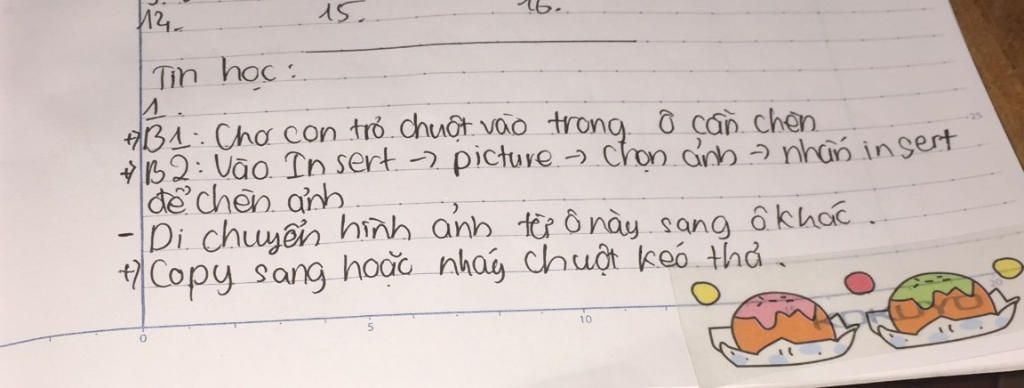 12. 15. 16.
Tin học:
1.
+) B1: Cho con trỏ chuột vào trong ô cần chèn
+) B2: Vào Insert → picture → chọn ảnh → nhấn insert
để chèn ảnh
- Di chuyển hình ảnh từ ô này sang ô khác.
+) Copy sang hoặc nháy chuột kéo thả.
25
0 5 10
KOKUYO